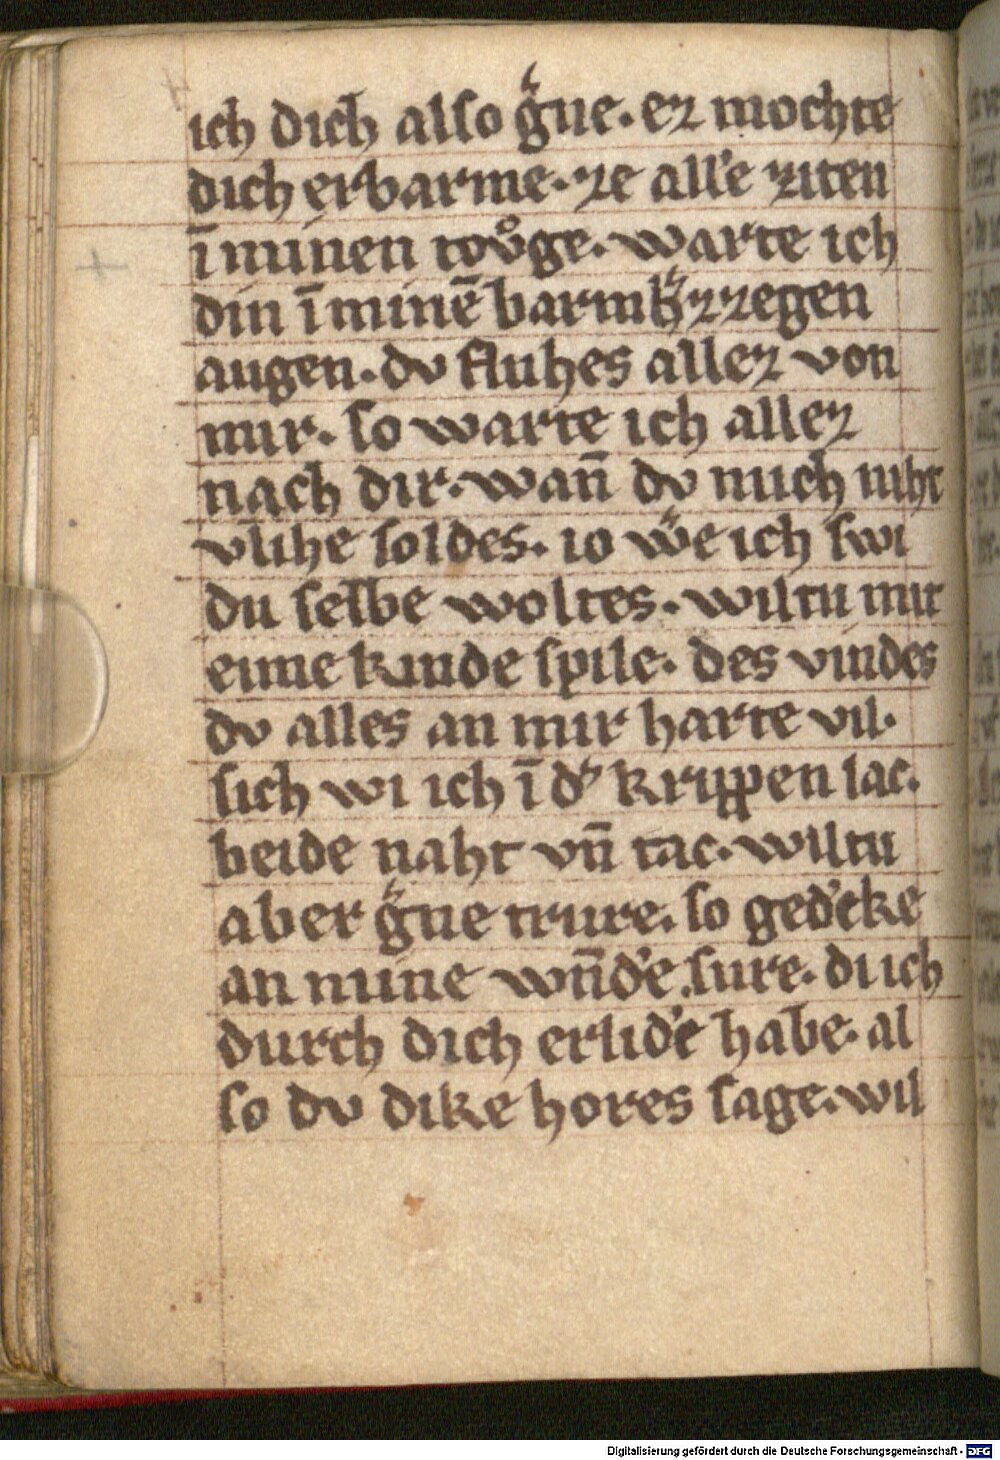 ich dich also g͛ne. ez mochte
dich erbarme. ze all'e ziten
ī minen tovͦge. warte ich
din ī minē barmh͛zzegen
augen. dv fluhes allez von
mir. so warte ich allez
nach dir. wan̄ dv mich niht
vlihe soldes. io we͛ ich swi
du selbe woltes. wiltu mit
eime kinde spile. des vindes
dv alles an mir harte vil.
sich wi ich ī d' krippen lac.
beide naht vn̄ tac. wiltu
aber g͛ne trure. so ged'cke
an mine wn̄d'e sure. di ich
durch dich erlid'e habe. al
so dv dike hores sage. wil
Digitalisierung gefördert durch die Deutsche Forschungsgemeinschaft - DFG